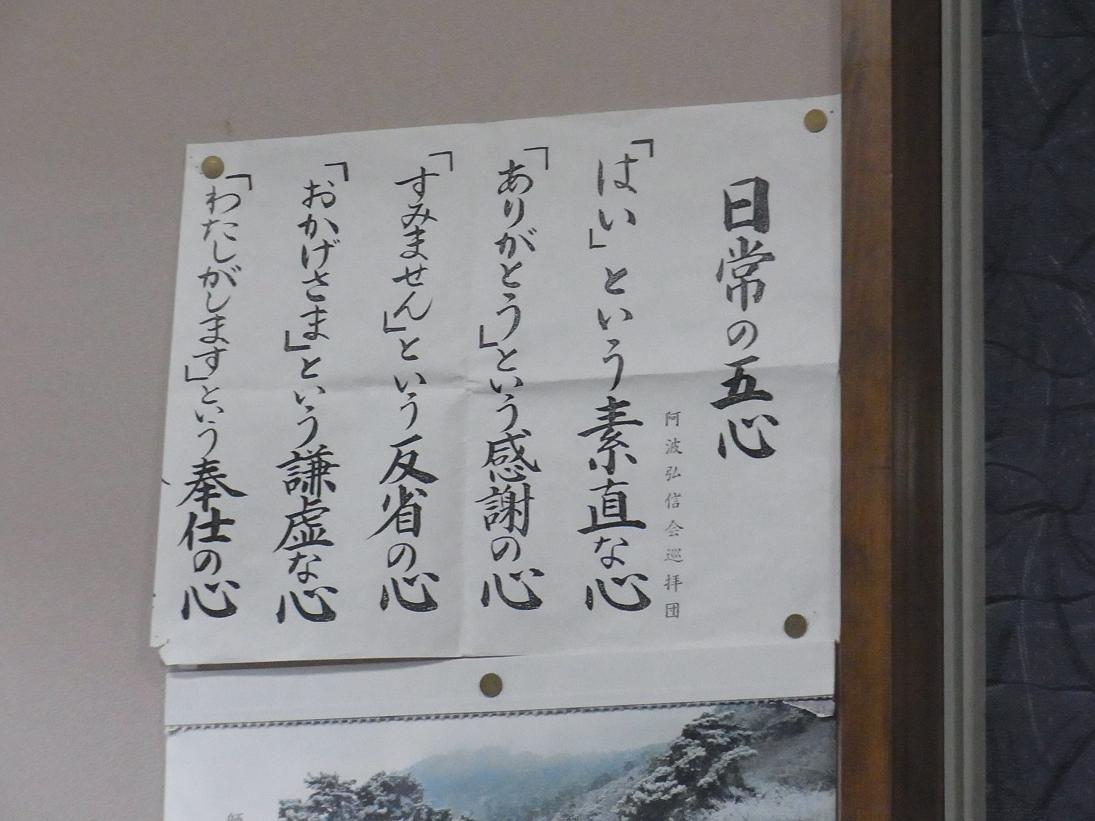 日常の五心
阿波弘信会巡拝団
「はい」という素直な心
「ありがとう」という感謝の心
「すみません」という反省の心
「おかげさま」という謙虚な心
「わたしがします」という奉仕の心